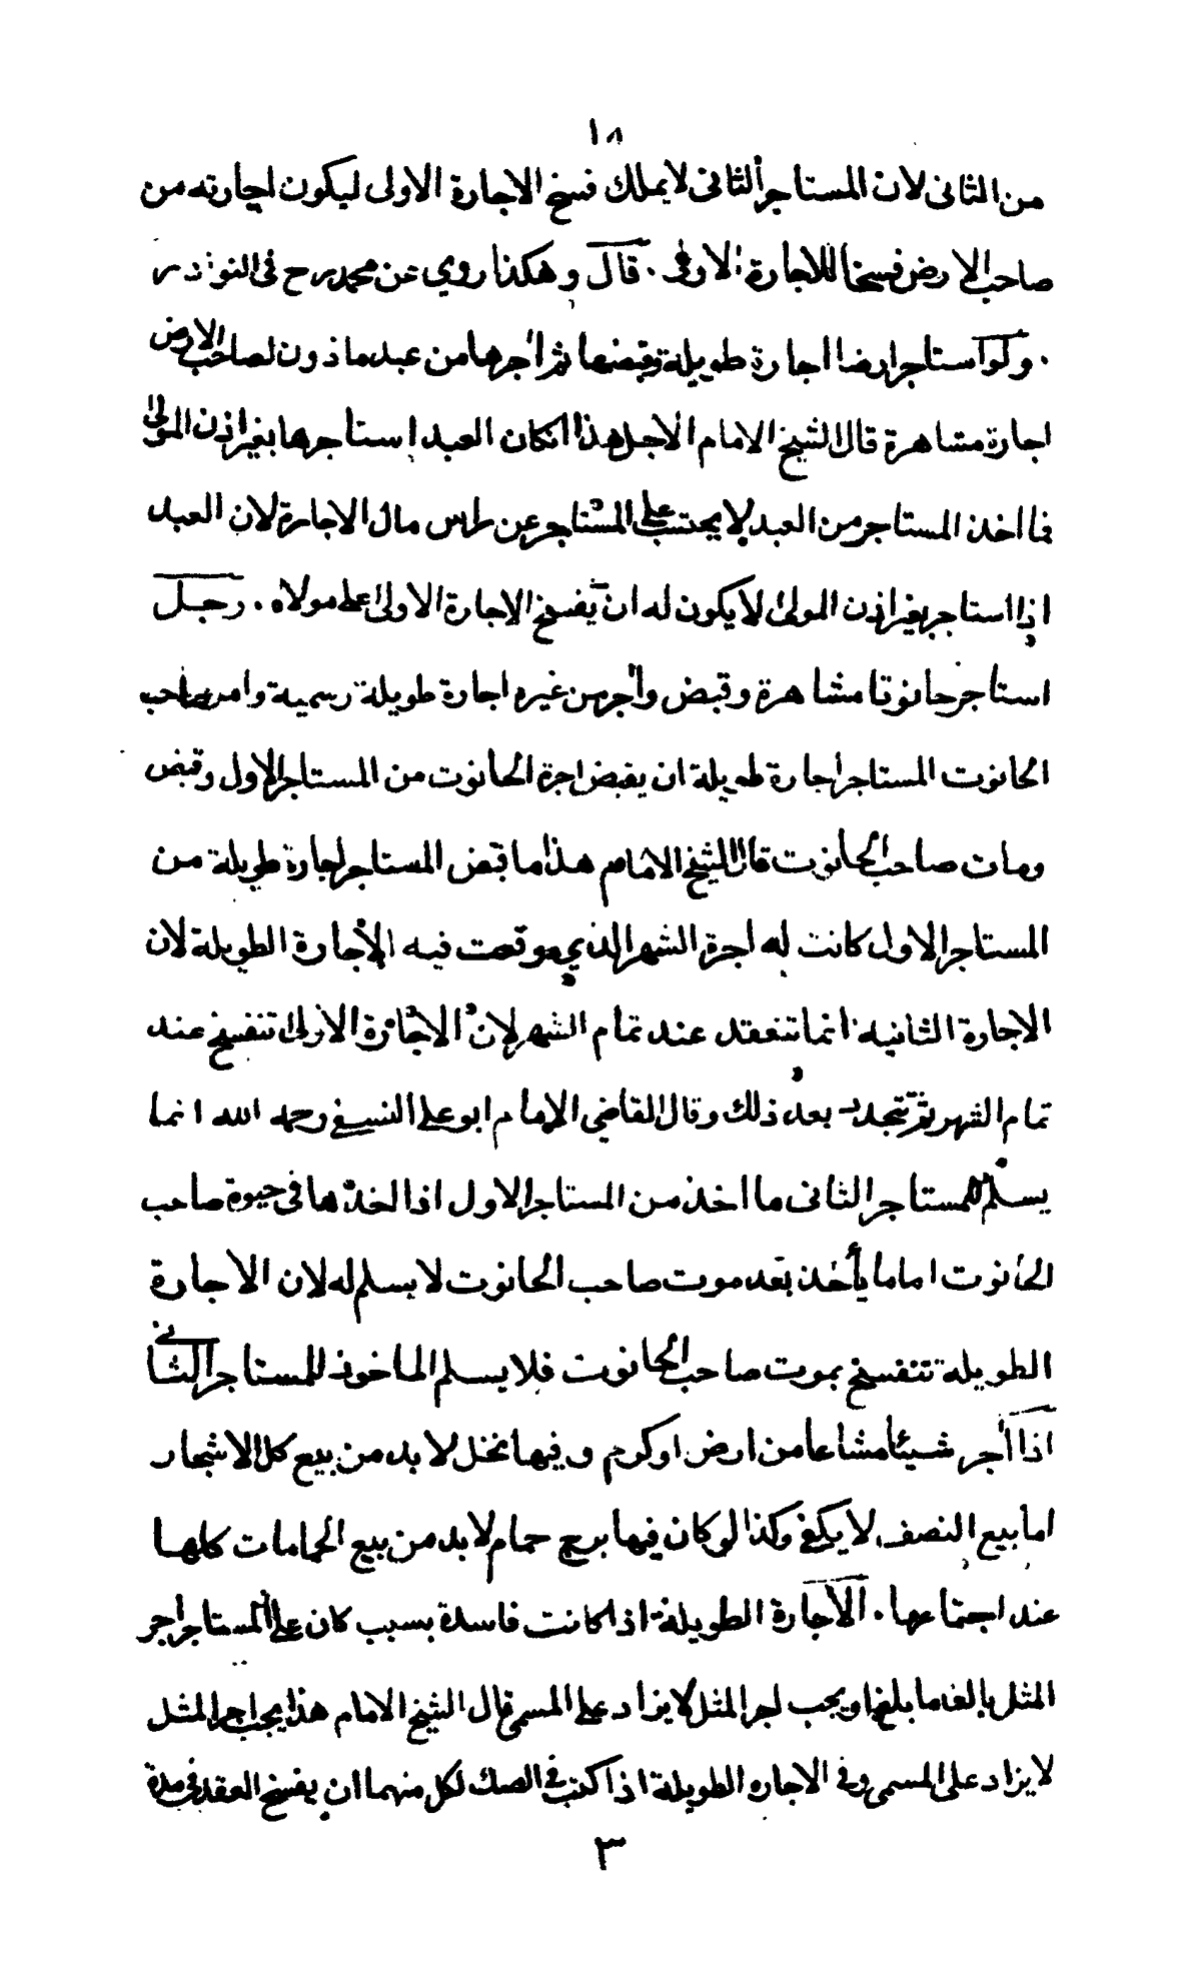 ١٨
من الثانى لان المستاجر الثانى لا يملك فسخ الاجارة الاولى ليكون اجارته من
صاحب الارض فسخا للاجارة الاولى . قال وهكذا روي عن محمد رح فى النوادر
. ولو استاجر ارضا اجارة طويلة وقبضها ثم اجرها من عبد ماذون لصاحب الارض
اجارة مشاهرة قال الشيخ الامام الاجل هذا انكان العبد استاجرها بغير اذن المولى
فما اخذ المستاجر من العبد لا يحتسب على المستاجر عن راس مال الاجارة لان العبد
اذا استاجر بغير اذن المولى لا يكون له ان يفسخ الاجارة الاولى على مولاه . رجل
استاجر حانوتا مشاهرة وقبض واجر من غيره اجارة طويلة رسمية وامر صاحب
الحانوت المستاجر اجارة طويلة ان يقبض اجرة الحانوت من المستاجر الاول وقبض
ومات صاحب الحانوت قال الشيخ الامام هذا ما قبض المستاجر اجارة طويلة من
المستاجر الاول كانت له اجرة الشهر الذي وقعت فيه الاجارة الطويلة لان
الاجارة الثانية انما تنعقد عند تمام الشهر لان الاجارة الاولى تنفسخ عند
تمام الشهر ثم تتجدد بعد ذلك وقال القاضي الامام ابو على النسفي رحمه الله انما
يسلم للمستاجر الثانى ما اخذ من المستاجر الاول اذا اخذها فى حيوة صاحب
الحانوت اما ما يأخذ بعد موت صاحب الحانوت لا يسلم له لان الاجارة
الطويلة تنفسخ بموت صاحب الحانوت فلا يسلم الماخوذ للمستاجر الثانى
اذا أجر شيئا مشاعا من ارض او كرم وفيها نخل لا بد من بيع كل الاشجار
اما بيع النصف لا يكفى وكذا لو كان فيها برج حمام لا بد من بيع الحمامات كلها
عند اجتماعها . الاجارة الطويلة اذا كانت فاسدة بسبب كان على المستاجر اجر
المثل بالغا ما بلغ او يجب اجر المثل لا يزاد على المسمى قال الشيخ الامام هذا يجب اجر المثل
لا يزاد على المسمى وفى الاجاره الطويلة اذا كتب فى الصك لكل منهما ان يفسخ العقد فى مدة
٣